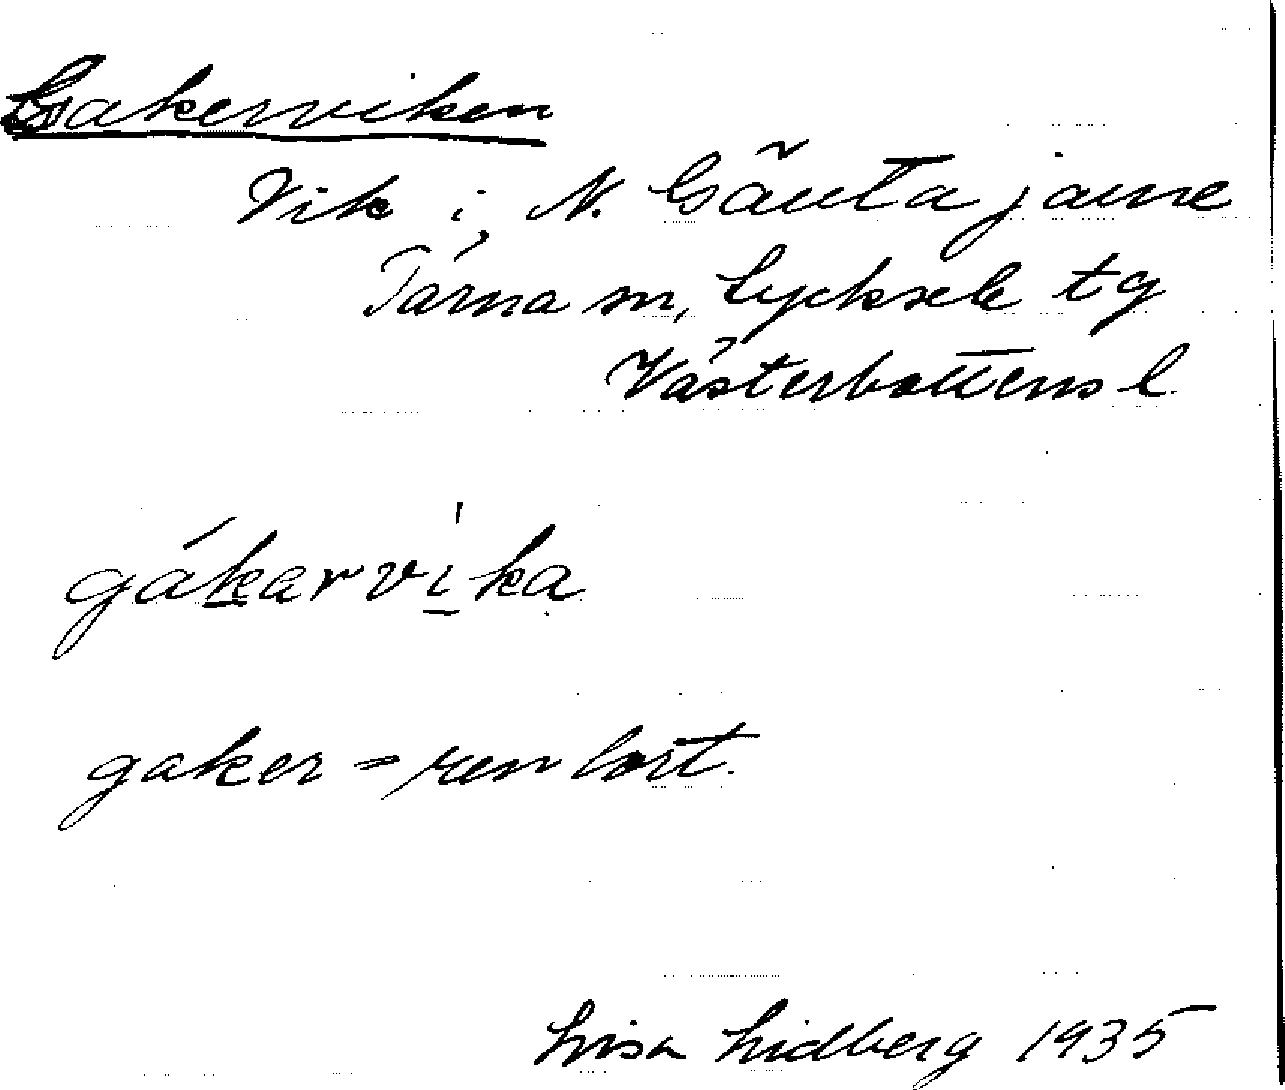 Gakerviken
Vik i N. Gäuta jaure
Tärna sn, Lycksele tg
Västerbottens l.
gákarvika
gaker = renlort.
Lisa Lidberg 1935